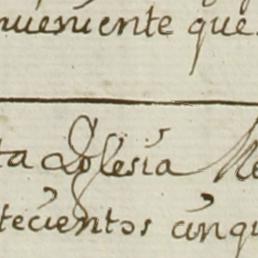 nveniente que
ta Iglesia Me
tecientos cinqu